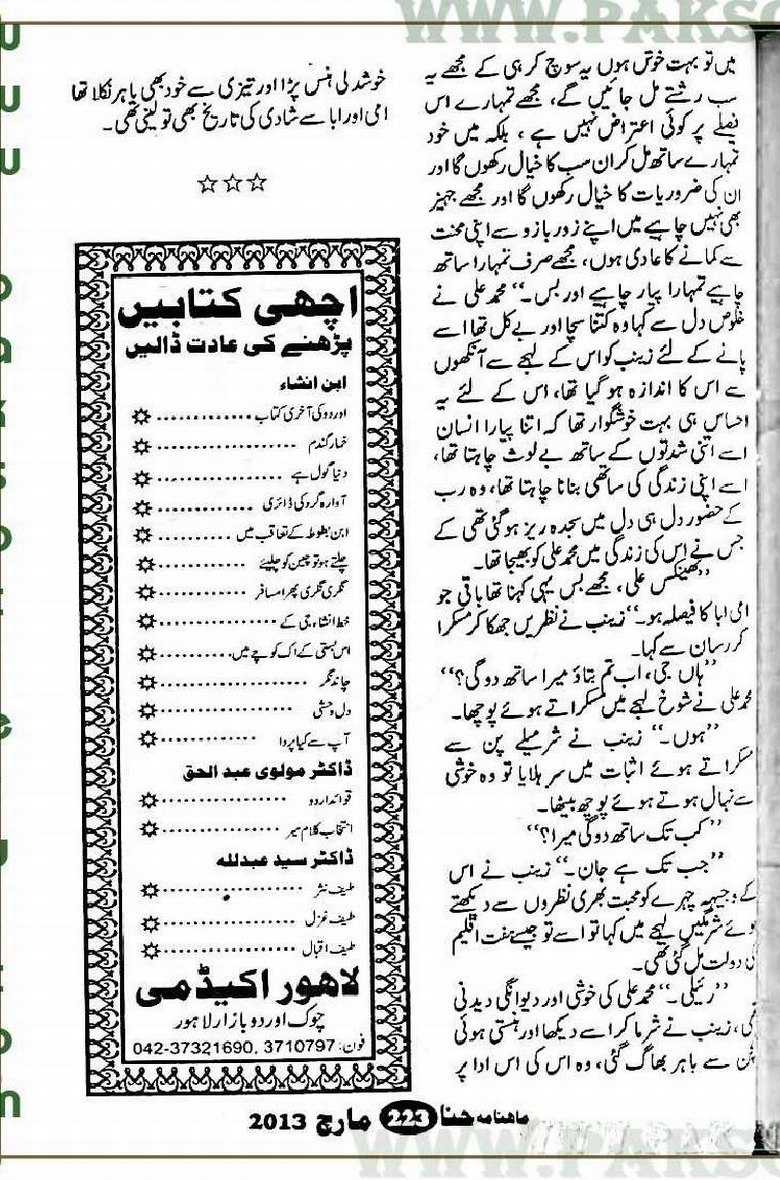 WWW.PAKSO
میں تو بہت خوش ہوں یہ سوچ کر ہی کے مجھے یہ
سب رشتے مل جائیں گے، مجھے تمہارے اس
فیصلے پر کوئی اعتراض نہیں ہے، بلکہ میں خود
تمہارے ساتھ مل کر ان سب کا خیال رکھوں گا اور
ان کی ضروریات کا خیال رکھوں گا اور مجھے جہیز
بھی نہیں چاہیے میں اپنے زور بازو سے اپنی محنت
سے کمانے کا عادی ہوں، مجھے صرف تمہارا ساتھ
چاہیے تمہارا پیار چاہیے اور بس۔“ محمد علی نے
خلوص دل سے کہا وہ کتنا سچا اور بے کل تھا اسے
پانے کے لئے زینب کو اس کے لہجے سے آنکھوں
سے اس کا اندازہ ہو گیا تھا، اس کے لئے یہ
احساس ہی بہت خوشگوار تھا کہ اتنا پیارا انسان
اسے اتنی شدتوں کے ساتھ بے لوث چاہتا تھا،
اسے اپنی زندگی کی ساتھی بنانا چاہتا تھا، وہ رب
کے حضور دل ہی دل میں سجدہ ریز ہو گئی تھی کے
جس نے اس کی زندگی میں محمد علی کو بھیجا تھا۔
”تھینکس علی، مجھے بس یہی کہنا تھا باقی جو
امی ابا کا فیصلہ ہو۔“ زینب نے نظریں جھکا کر مسکرا
کر رسان سے کہا۔
”ہاں جی، اب تم بتاؤ میرا ساتھ دو گی؟“
محمد علی نے شوخ لہجے میں مسکراتے ہوئے پوچھا۔
”ہوں۔“ زینب نے شرمیلے پن سے
مسکراتے ہوئے اثبات میں سر ہلایا تو وہ خوشی
سے نہال ہوتے ہوئے پوچھ بیٹھا۔
”کب تک ساتھ دو گی میرا؟“
”جب تک ہے جان۔“ زینب نے اس
کے وجیہہ چہرے کو محبت بھری نظروں سے دیکھتے
ہوئے شرمگیں لہجے میں کہا تو اسے تو جیسے ہفت اقلیم
کی دولت مل گئی تھی۔
”رئیلی۔“ محمد علی کی خوشی اور دیوانگی دیدنی
تھی، زینب نے شرما کر اسے دیکھا اور ہنستی ہوئی
سے باہر بھاگ گئی، وہ اس کی اس ادا پر
خوشدلی ہنس پڑا اور تیزی سے خود بھی باہر نکلا تھا
امی اور ابا سے شادی کی تاریخ بھی تو لینی تھی۔
☆☆☆
اچھی کتابیں
پڑھنے کی عادت ڈالیں
ابن انشاء
اوردو کی آخری کتاب
خمار گندم
دنیا گول ہے
آوارہ گرد کی ڈائری
ابن بطوطہ کے تعاقب میں
چلتے ہو تو چین کو چلیئے
نگری نگری پھرا مسافر
خط انشاء جی کے
اس بستی کے اک کوچے میں
چاند نگر
دل وحشی
آپ سے کیا پردا
ڈاکٹر مولوی عبد الحق
قوائد اردو
انتخاب کلام میر
ڈاکٹر سید عبدللہ
طیف نثر
طیف غزل
طیف اقبال
لاھور اکیڈمی
چوک اوردو بازار لاہور
فون: 042-37321690, 3710797
ماهنامه حنا 223 مارچ 2013
WWW.PAKSO